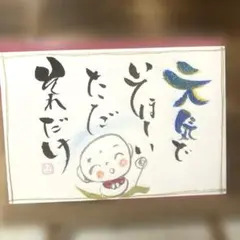 元気で
いてほしい
ただ
それだけ